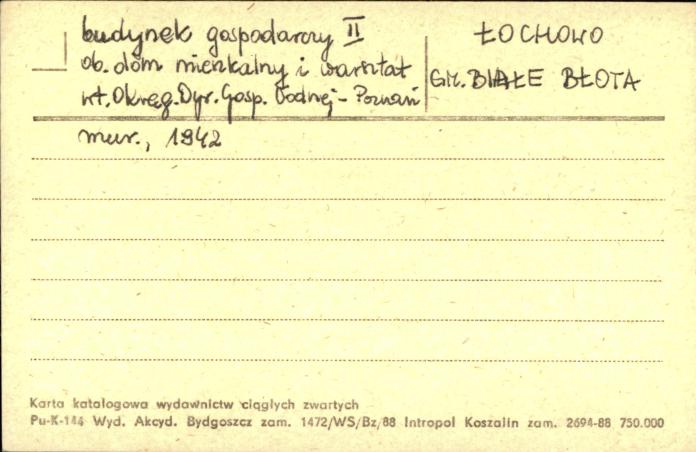 budynek gospodarczy II
ob. dom mieszkalny i warsztat
wł. Okręg. Dyr. Gosp. Wodnej - Poznań
mur., 1942
ŁOCHOWO
GM. BIAŁE BŁOTA
Karta katalogowa wydawnictw ciągłych zwartych
Pu-K-144 Wyd. Akcyd. Bydgoszcz zam. 1472/WS/Bz/88 Intropol Koszalin zam. 2694-88 750.000